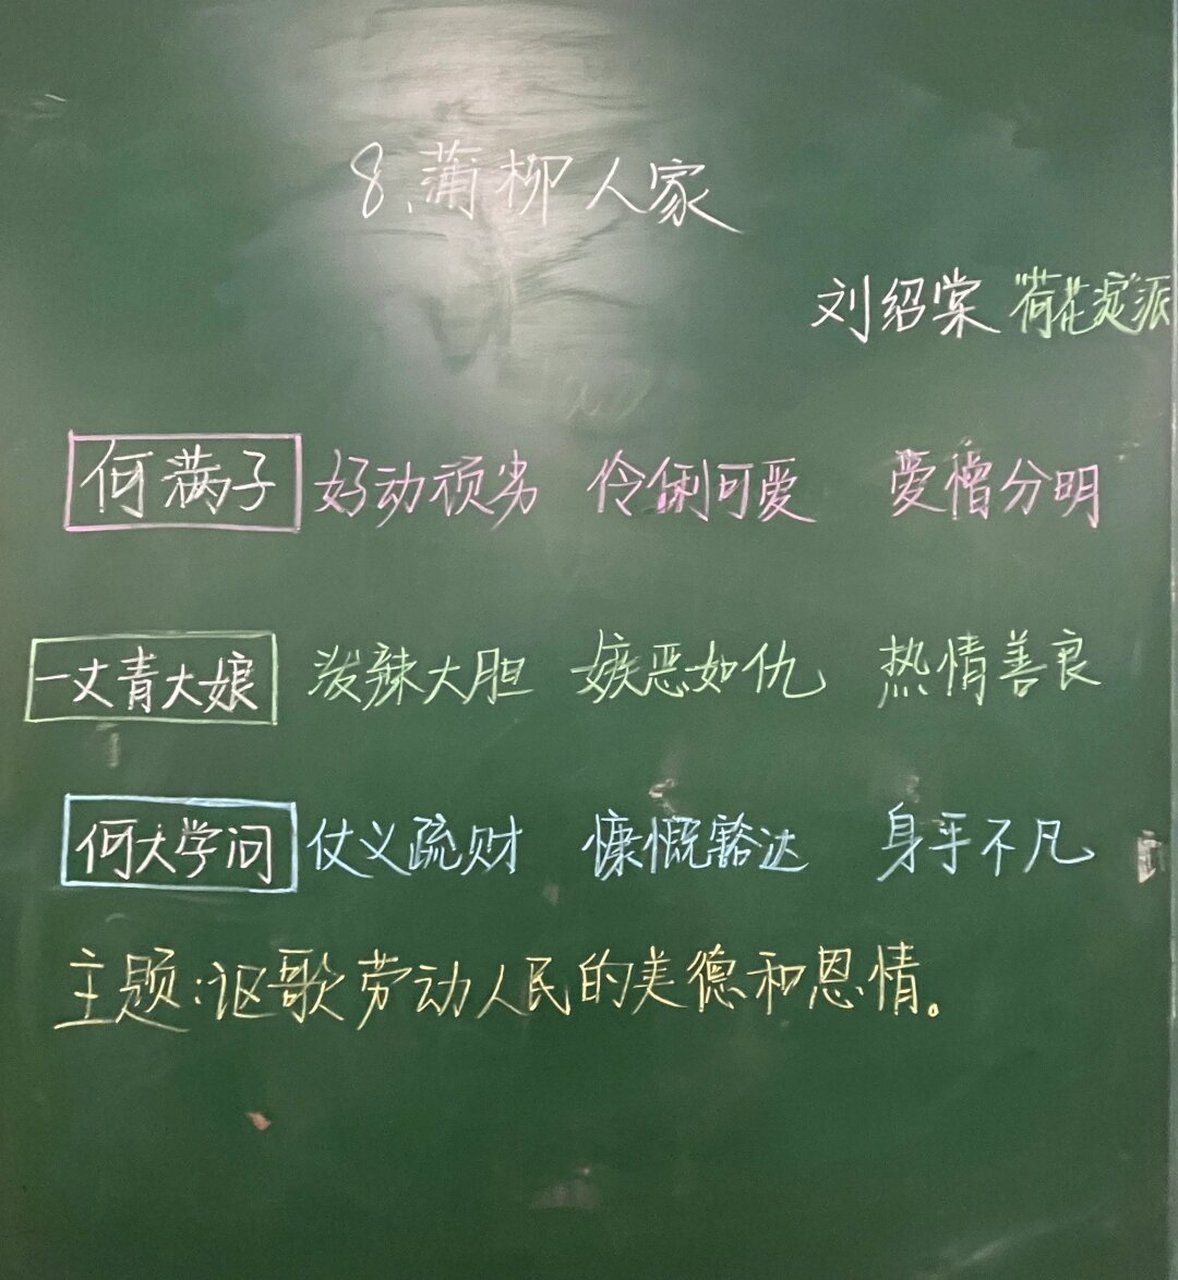 8、蒲柳人家
刘绍棠 "荷花淀"派
何满子 好动顽劣 伶俐可爱 爱憎分明
一丈青大娘 泼辣大胆 嫉恶如仇 热情善良
何大学问 仗义疏财 慷慨豁达 身手不凡
主题:讴歌劳动人民的美德和恩情。